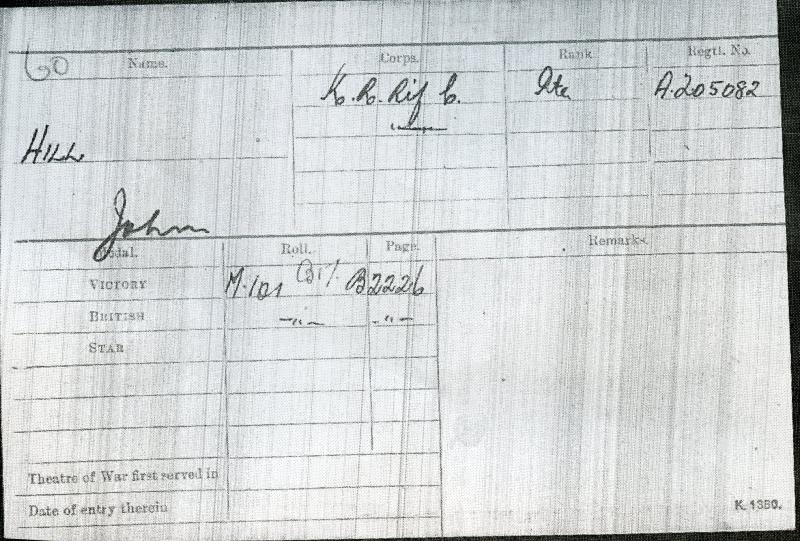 60 Name. Corps. Rank Regtl. No.
K. R. Rif C. Pte A.205082
HILL
John
Medal. Roll. Page. Remarks.
VICTORY M.101 B2226
BRITISH -"- -"-
STAR
Theatre of War first served in
Date of entry therein
K. 1380.